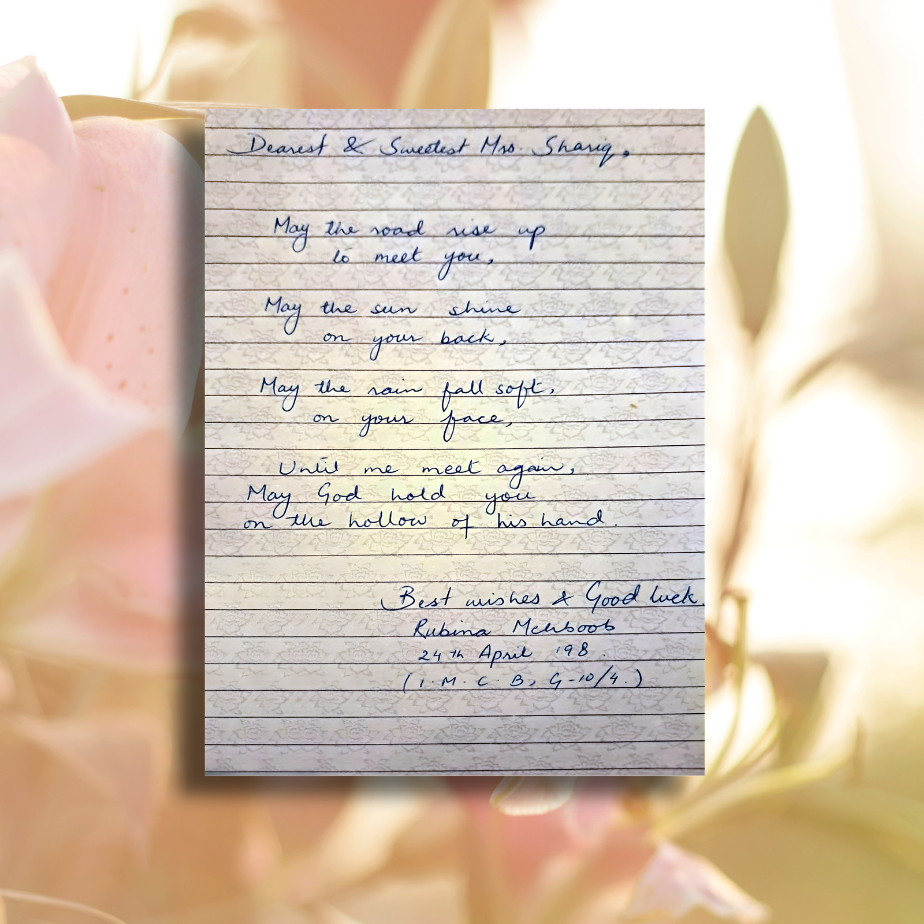 Dearest & Sweetest Mrs. Shariq,
May the road rise up
to meet you,
May the sun shine
on your back,
May the rain fall soft,
on your face,
Until me meet again,
May God hold you
on the hollow of his hand.
Best wishes & Good luck.
Rubina Mehboob
24th April '98.
(I.M.C.B, G-10/4.)